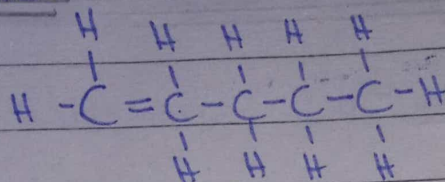 H H H H H
H - C = C - C - C - C - H
H H H H